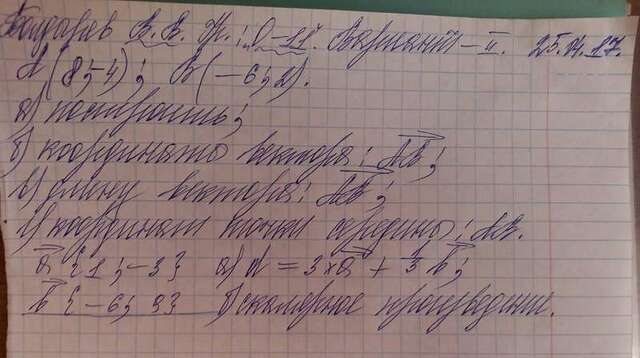 Бондарев В. В. Ж.; О-11. Вариант-II. 25.11.17.
А(8;-4); В(-6;2).
а) построить;
б) координато вектора: АВ;
в) длину вектора: АВ;
г) координат точки середины: АВ.
а {1;-3} а) А = 3×а + 1/3 b;
b {-6;9} б) скалярное произведение.